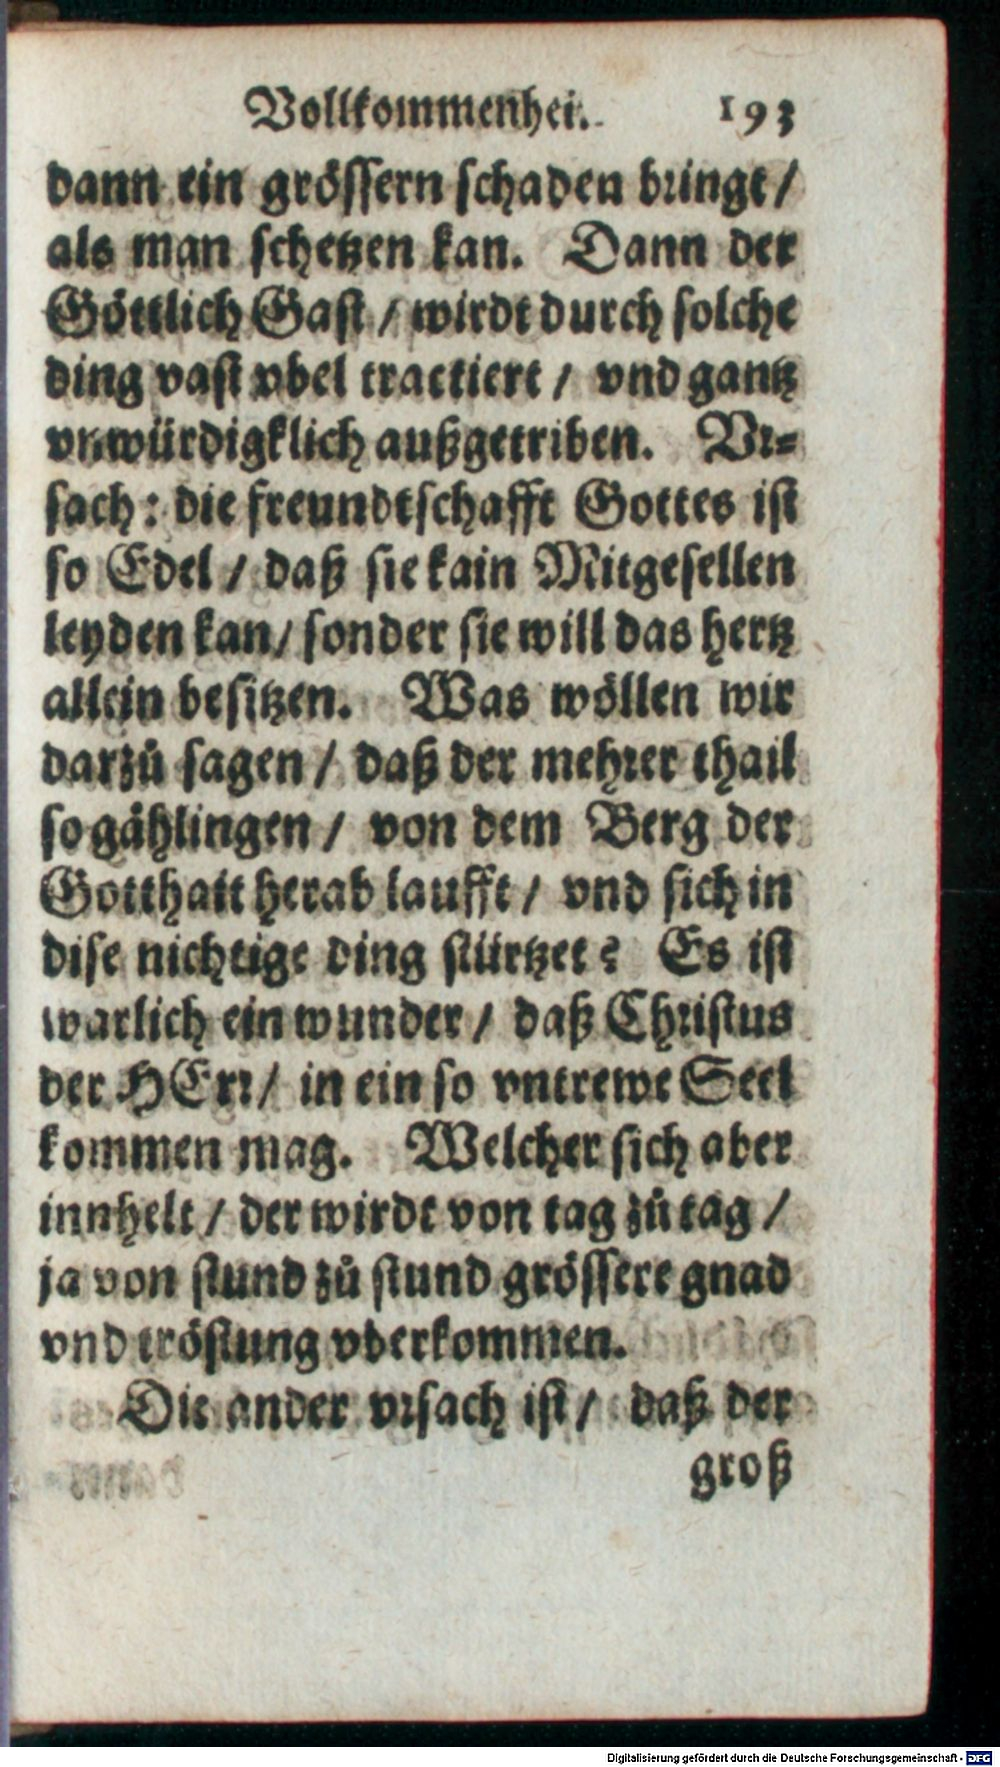 Vollkommenhei. 193
dann ein grössern schaden bringt /
als man schetzen kan. Dann der
Göttlich Gast / wirdt durch solche
ding vast vbel tractiert / vnd gantz
vnwürdigklich außgetriben. Vr=
sach: die freundtschafft Gottes ist
so Edel / daß sie kain Mitgesellen
leyden kan / sonder sie will das hertz
allein besitzen. Was wöllen wir
darzů sagen / daß der mehrer thail
so gählingen / von dem Berg der
Gotthait herab laufft / vnd sich in
dise nichtige ding stürtzet? Es ist
warlich ein wunder / daß Christus
der HErr / in ein so vntrewe Seel
kommen mag. Welcher sich aber
innhelt / der wirdt von tag zů tag /
ja von stund zů stund grössere gnad
vnd tröstung vberkommen.
Die ander vrsach ist / daß der
groß
Digitalisierung gefördert durch die Deutsche Forschungsgemeinschaft - DFG